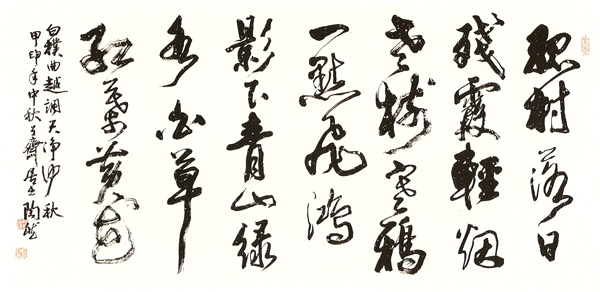 孤村落日
殘霞輕烟
老樹寒鴉
一點飛鴻
影下青山綠
水白草
紅葉黃花
白樸曲越調天淨沙秋
甲申年中秋 居士陶然